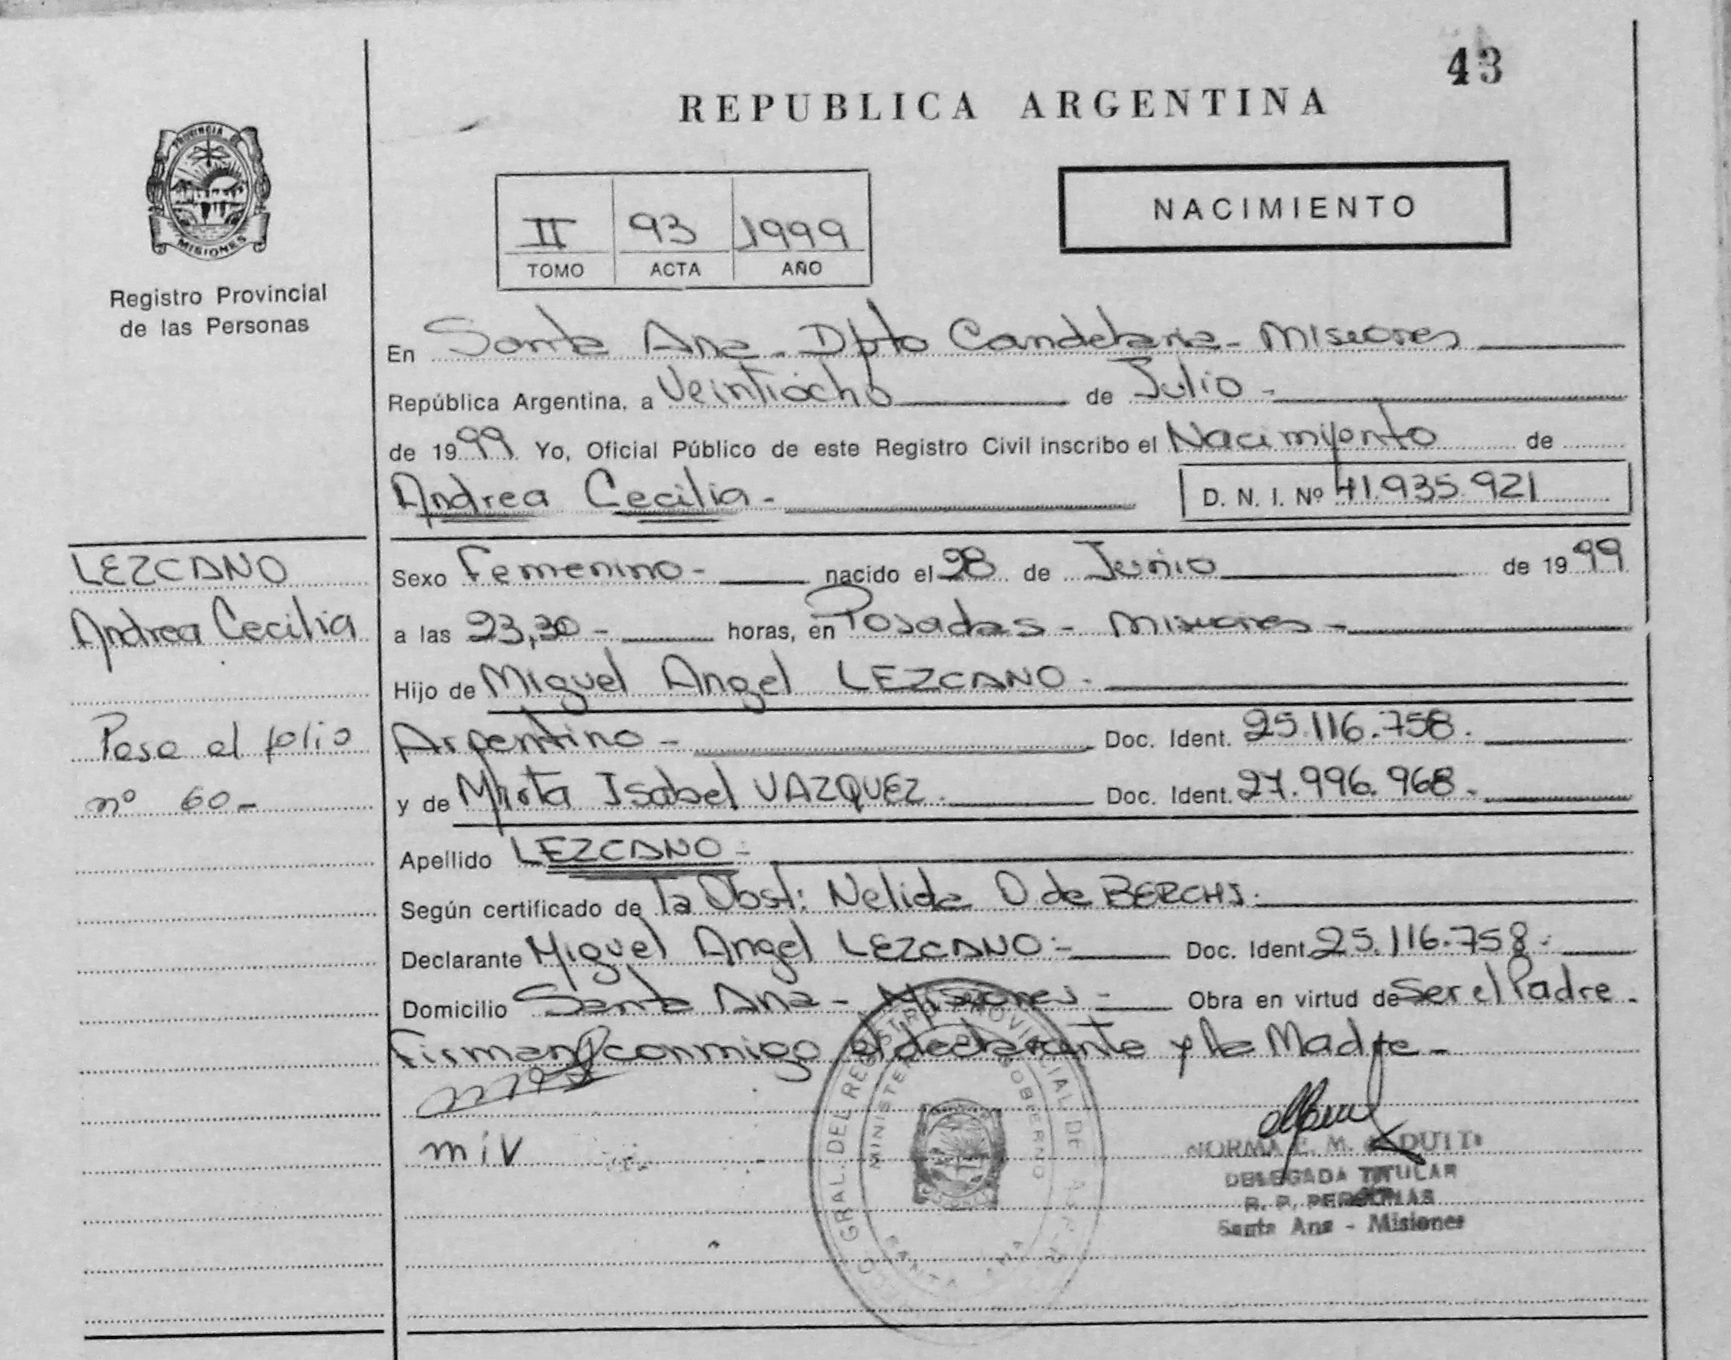 43
REPUBLICA ARGENTINA
PROVINCIA
MISIONES
Registro Provincial
de las Personas
II 93 1999
TOMO ACTA AÑO
NACIMIENTO
En Santa Ana - Dpto Candelaria - Misiones
República Argentina, a Veintiocho de Julio -
de 1999 Yo, Oficial Público de este Registro Civil inscribo el Nacimiento de
Andrea Cecilia - D. N. I. Nº 41.935.921
LEZCANO
Andrea Cecilia
Pase al folio
nº 60-
Sexo Femenino - nacido el 28 de Junio de 1999
a las 23,30 - horas, en Posadas - Misiones -
Hijo de Miguel Angel LEZCANO -
Argentino - Doc. Ident. 25.116.758.
y de Mirta Isabel VAZQUEZ. Doc. Ident. 27.996.968-
Apellido LEZCANO -
Según certificado de la Obst: Nelida O de BERCHI.
Declarante Miguel Angel LEZCANO - Doc. Ident. 25.116.758.
Domicilio Santa Ana - Misiones - Obra en virtud de Ser el Padre -
Firman conmigo el declarante y la Madre -
miv
GRAL. DEL REGISTRO PROVINCIAL DE
MINISTERIO GOBIERNO
SANTA ANA
NORMA E. M.
DELEGADA TITULAR
R. P. PERSONAS
Santa Ana - Misiones